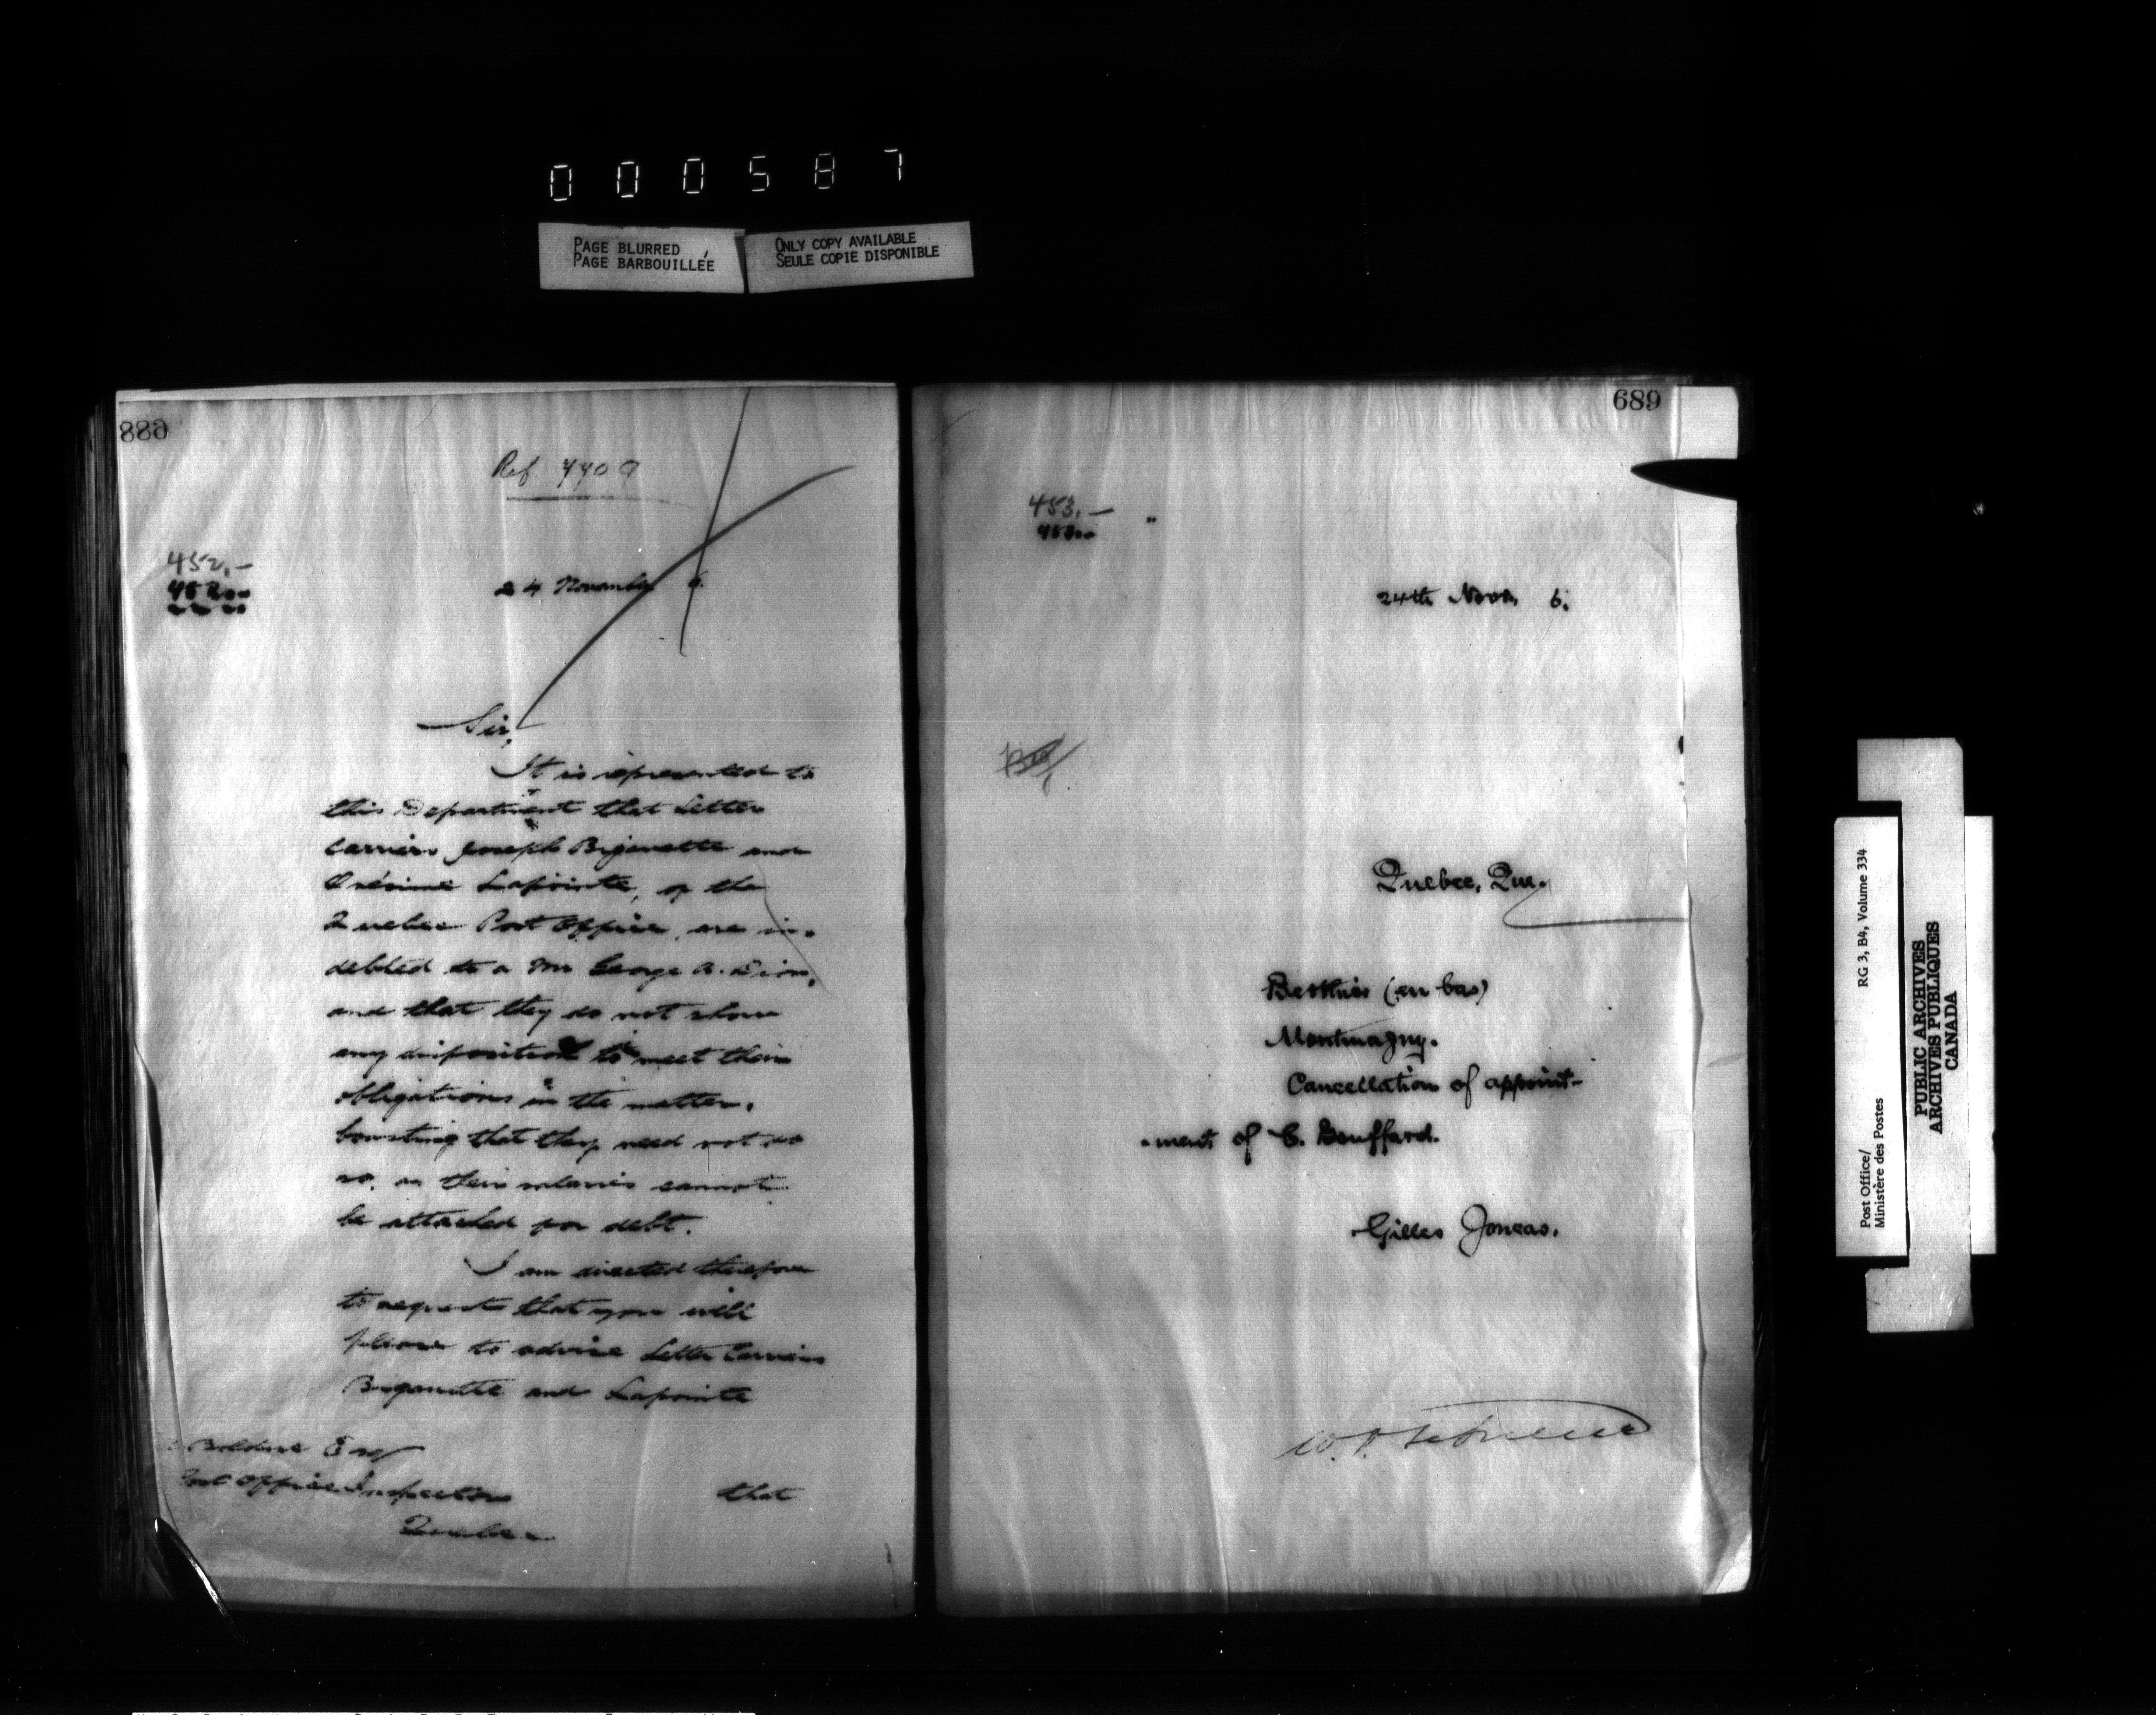 000587
PAGE BLURRED
PAGE BARBOUILLÉE
ONLY COPY AVAILABLE
SEULE COPIE DISPONIBLE
688
Ref 770 9
452.-
24 November 6.
Sir,
It is represented to
this Department that Letter
Carriers Joseph Bigaouette and
Onésime Lapointe, of the
Quebec Post Office, are in-
debted to a Mr George A. Dion,
and that they do not show
any disposition to meet their
obligations in the matter,
boasting that they need not do
so, as their salaries cannot
be attached for debt.
I am directed therefore
to request that you will
please to advise Letter Carriers
Bigaouette and Lapointe
Bolduc Esq
Post Office Inspector
Quebec
that
689
453.-
24th Nov. 6.
Quebec, Que.
Berthier (en bas)
Montmagny.
Cancellation of appoint-
-ment of C. Bouffard.
Gilles Joncas.
Post Office/
Ministère des Postes
RG 3, B4, Volume 334
PUBLIC ARCHIVES
ARCHIVES PUBLIQUES
CANADA